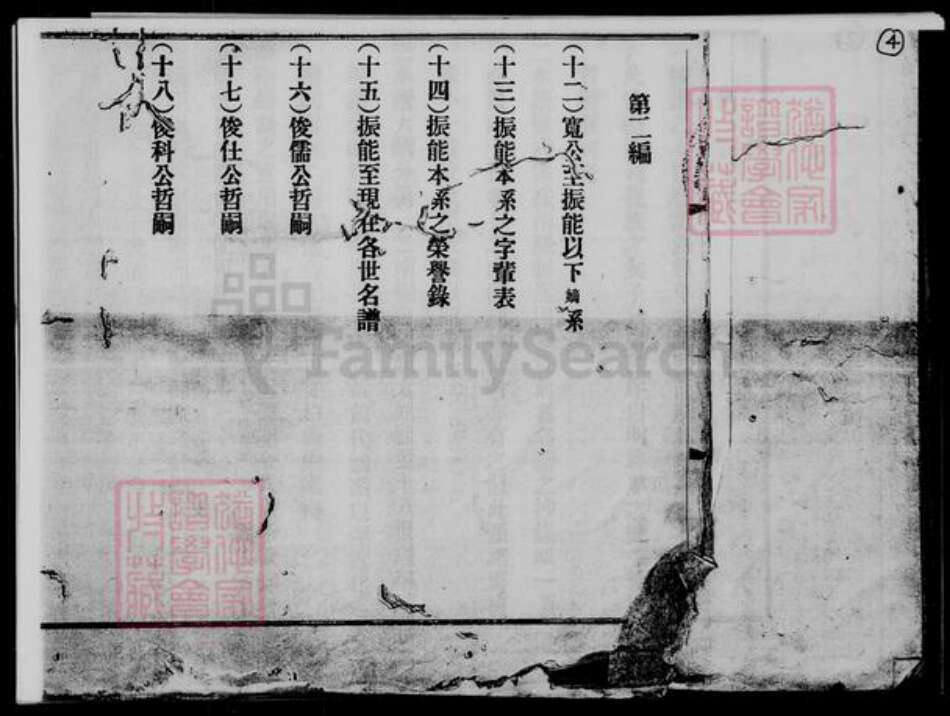 4
第二編
(十二)寬公至振能以下嫡系
(十三)振能本系之字輩表
(十四)振能本系之榮譽錄
(十五)振能至現在各世名譜
(十六)俊儒公哲嗣
(十七)俊仕公哲嗣
(十八)俊科公哲嗣
FamilySearch